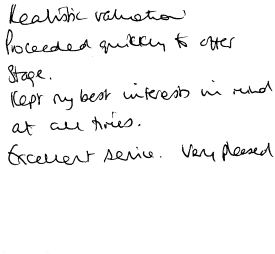 Realistic valuation
Proceeded quickly to offer
Stage.
Kept my best interests in mind
at all times.
Excellent service. Very pleased